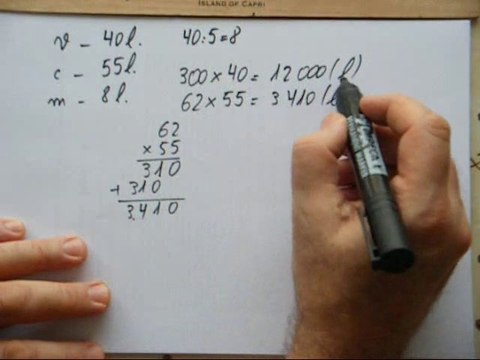 ISLAND OF CAPRI
v - 40 l. 40:5=8
c - 55 l. 300 × 40 = 12 000 (l)
m - 8 l. 62 × 55 = 3 410 (l
62
× 55
310
+ 310
3 410